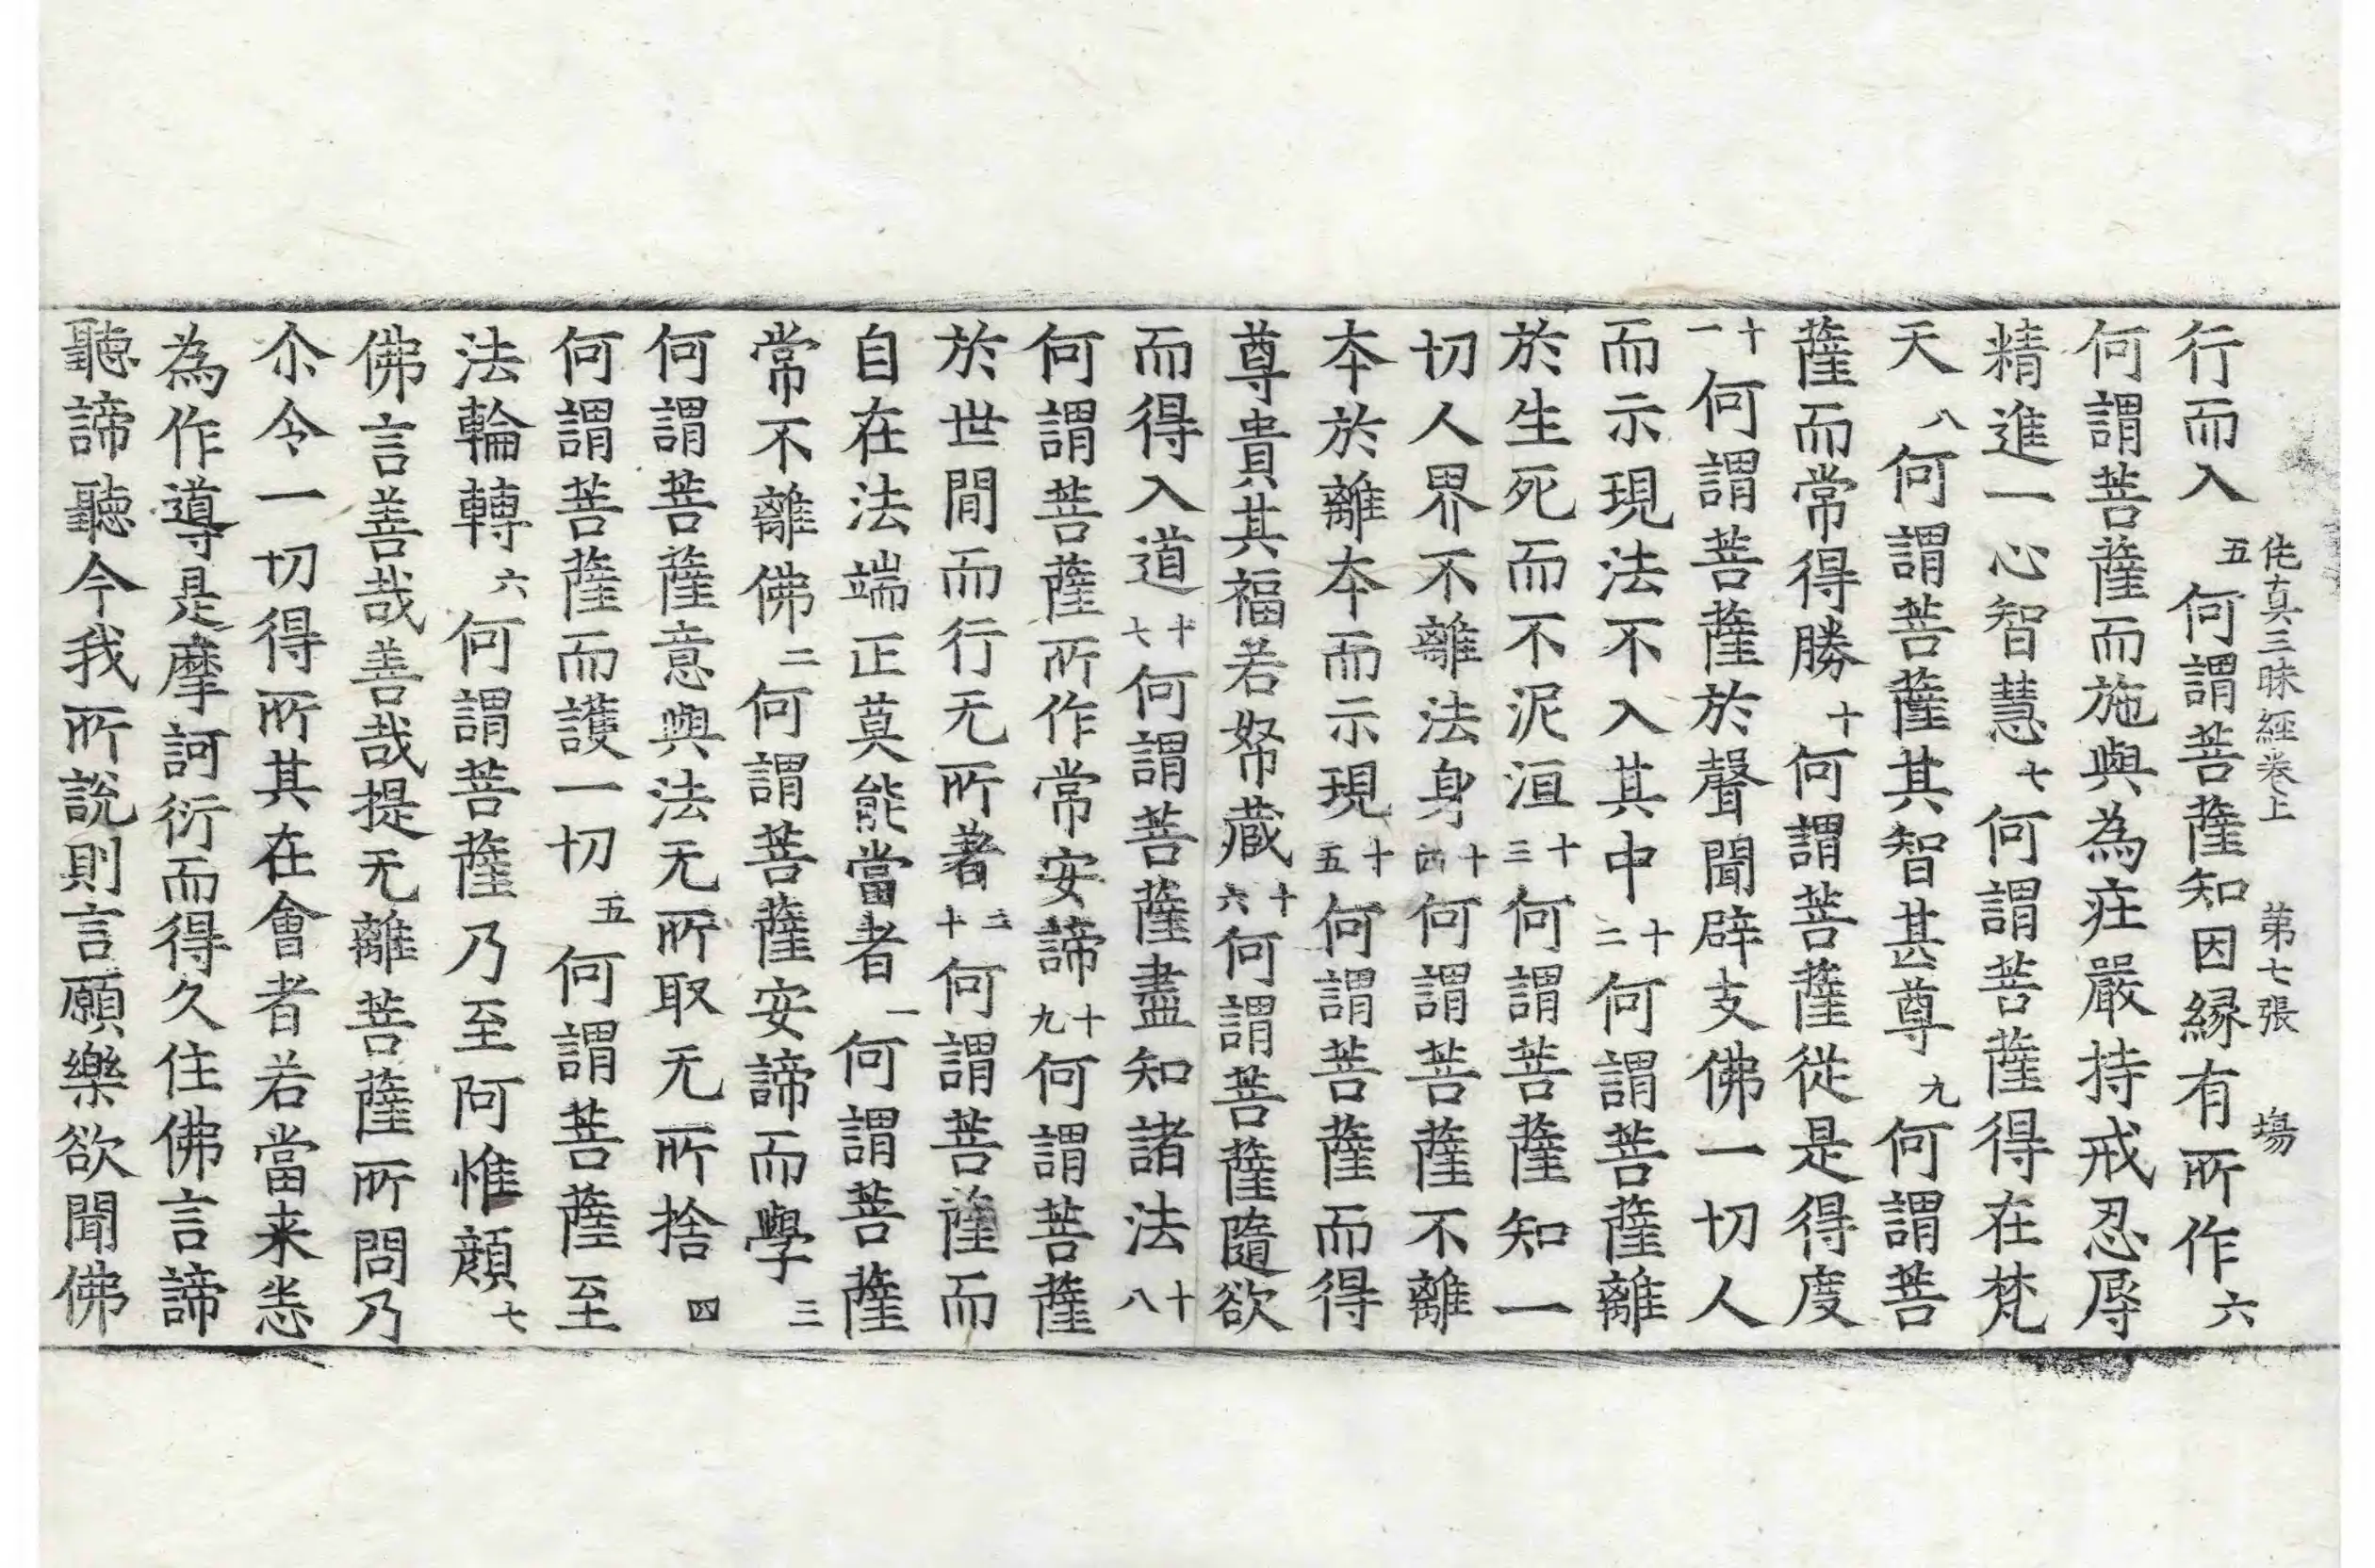 行而入五何謂菩薩知因縁有所作六
伅真三昧經卷上 第七張 塲
何謂菩薩而施與為㽵嚴持戒忍辱
精進一心智慧七何謂菩薩得在梵
天八何謂菩薩其智甚尊九何謂菩
薩而常得勝十何謂菩薩從是得度
十一何謂菩薩於聲聞辟支佛一切人
而示現法不入其中十二何謂菩薩離
於生死而不泥洹十三何謂菩薩知一
切人界不離法身十四何謂菩薩不離
夲於離夲而示現十五何謂菩薩而得
尊貴其福若帑藏十六何謂菩薩隨欲
而得入道十七何謂菩薩盡知諸法十八
何謂菩薩所作常安諦十九何謂菩薩
於世閒而行无所著二十何謂菩薩而
自在法端正莫能當者一何謂菩薩
常不離佛二何謂菩薩安諦而學三
何謂菩薩意與法无所取无所捨四
何謂菩薩而護一切五何謂菩薩至
法輪轉六何謂菩薩乃至阿惟顔七
佛言善哉善哉提无離菩薩所問乃
尒令一切得所其在會者若當来悉
為作導是摩訶衍而得久住佛言諦
聽諦聽今我所說則言願樂欲聞佛